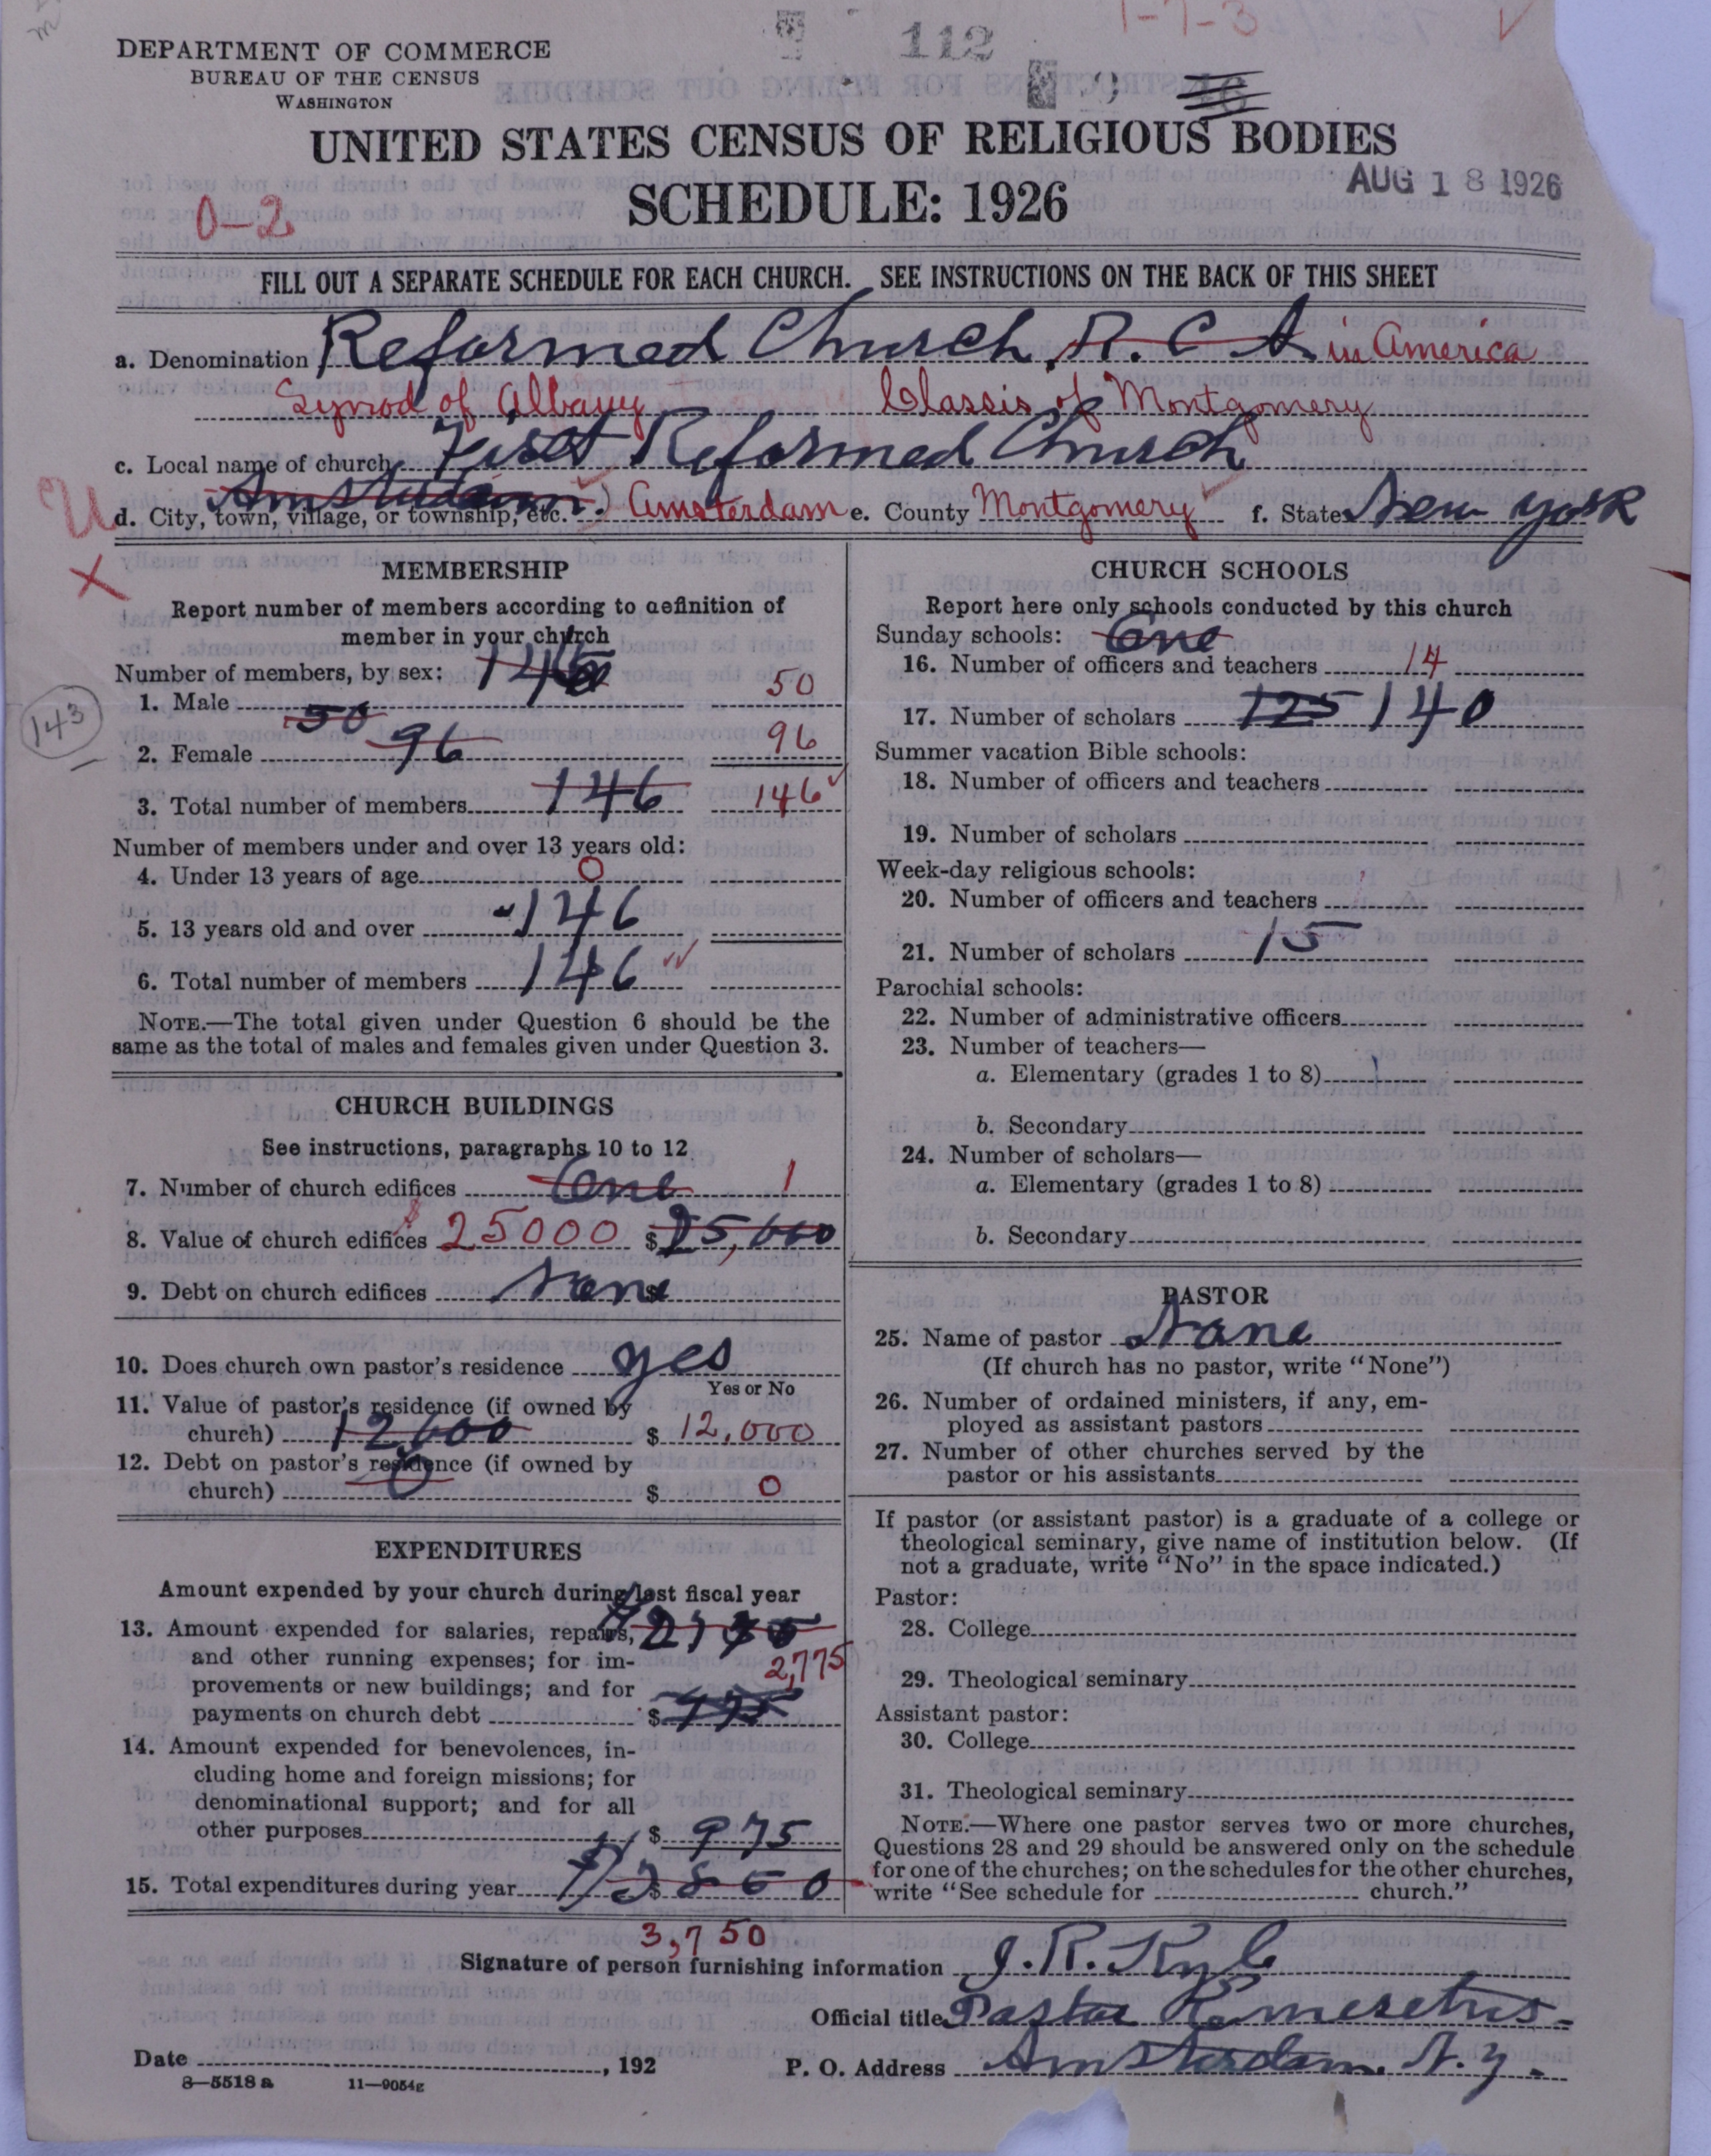 112
1-7-3
DEPARTMENT OF COMMERCE
BUREAU OF THE CENSUS
WASHINGTON
UNITED STATES CENSUS OF RELIGIOUS BODIES
SCHEDULE: 1926
AUG 18 1926
0-2
FILL OUT A SEPARATE SCHEDULE FOR EACH CHURCH. SEE INSTRUCTIONS ON THE BACK OF THIS SHEET
a. Denomination Reformed Church R. C. A. in America
Synod of Albany Classis of Montgomery
c. Local name of church First Reformed Church
d. City, town, village, or township, etc. Amsterdam Amsterdam e. County Montgomery f. State New York
U
X
MEMBERSHIP
Report number of members according to definition of
member in your church
Number of members, by sex:
1. Male 50 50
143
2. Female 96 96
3. Total number of members 146 146
Number of members under and over 13 years old:
4. Under 13 years of age 0
5. 13 years old and over 146
6. Total number of members 146
NOTE.—The total given under Question 6 should be the
same as the total of males and females given under Question 3.
CHURCH BUILDINGS
See instructions, paragraphs 10 to 12
7. Number of church edifices One 1
8. Value of church edifices 25000 $ 25,000
9. Debt on church edifices None $
10. Does church own pastor's residence yes
Yes or No
11. Value of pastor's residence (if owned by
church) 12,000 $ 12,000
12. Debt on pastor's residence (if owned by
church) 0 $ 0
EXPENDITURES
Amount expended by your church during last fiscal year
13. Amount expended for salaries, repairs,
and other running expenses; for im- 2,775
provements or new buildings; and for
payments on church debt $
14. Amount expended for benevolences, in-
cluding home and foreign missions; for
denominational support; and for all
other purposes $ 975
15. Total expenditures during year $
3,750
CHURCH SCHOOLS
Report here only schools conducted by this church
Sunday schools: One
16. Number of officers and teachers 14
17. Number of scholars 125 140
Summer vacation Bible schools:
18. Number of officers and teachers
19. Number of scholars
Week-day religious schools:
20. Number of officers and teachers
21. Number of scholars 15
Parochial schools:
22. Number of administrative officers
23. Number of teachers—
a. Elementary (grades 1 to 8)
b. Secondary
24. Number of scholars—
a. Elementary (grades 1 to 8)
b. Secondary
PASTOR
25. Name of pastor None
(If church has no pastor, write "None")
26. Number of ordained ministers, if any, em-
ployed as assistant pastors
27. Number of other churches served by the
pastor or his assistants
If pastor (or assistant pastor) is a graduate of a college or
theological seminary, give name of institution below. (If
not a graduate, write "No" in the space indicated.)
Pastor:
28. College
29. Theological seminary
Assistant pastor:
30. College
31. Theological seminary
NOTE.—Where one pastor serves two or more churches,
Questions 28 and 29 should be answered only on the schedule
for one of the churches; on the schedules for the other churches,
write "See schedule for church."
Signature of person furnishing information J. R. Kyle
Official title Pastor Emeritus
Date , 192 P. O. Address Amsterdam, N. Y.
8—5518 a 11—9054g